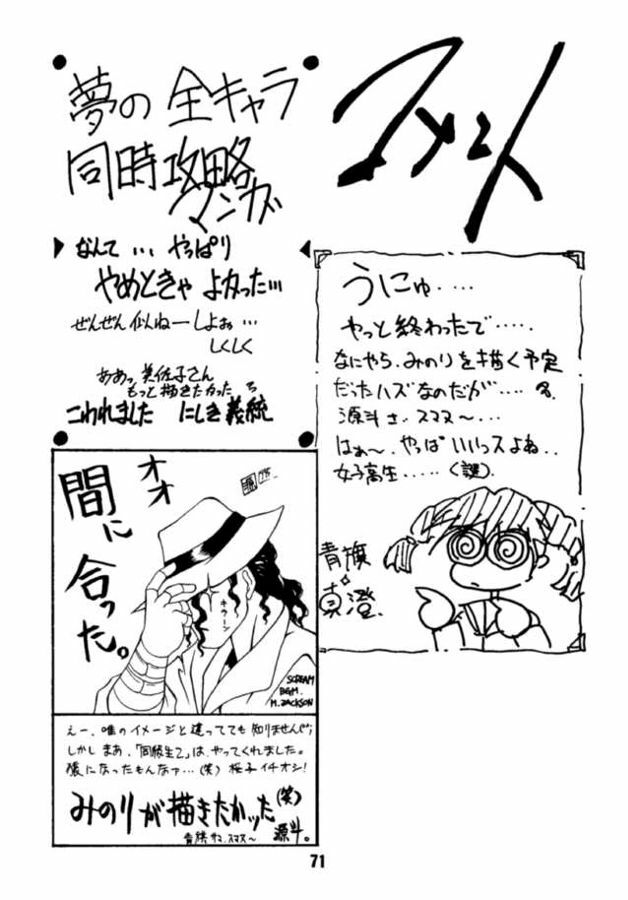 コメント
夢の全キャラ
同時攻略
マンガ
なんて…やっぱり
やめときゃよかった…
ぜんぜん似ねーしよぉ…
しくしく
ああっ美佐子さん
もっと描きたかった
こわれました にしき義統
うにゅ‥‥
やっと終わったで‥‥‥
なにやら、みのりを描く予定
だったハズなのだが‥‥
源斗さ、スマヌ〜‥‥
はぁ〜、やっぱいいっスよね‥
女子高生‥‥‥(謎)
青旗
真澄
オオ
間に
合った。
キラーン
SCREAM
BGM.
M.JACKSON
えー、唯のイメージと違ってても知りませんぜ;
しかしまあ、「同級生2」は、やってくれました。
様になったもんなァ…(笑)桜子イチオシ!
みのりが描きたかッた(笑)
青旗サマ、スマヌ〜
源斗。
71